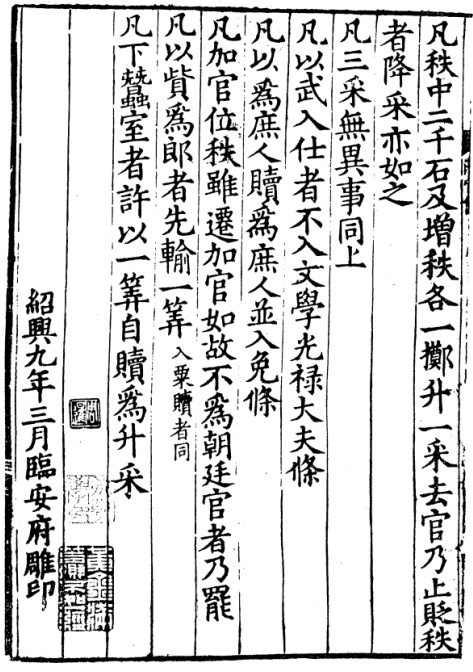 凡秩中二千石及增秩各一擲升一采去官乃止貶秩
者降采亦如之
凡三采無異事同上
凡以武入仕者不入文學光禄大夫條
凡以爲庶人贖爲庶人並入免條
凡加官位秩雖遷加官如故不爲朝廷官者乃罷
凡以貲爲郎者先輸一筭入粟贖者同
凡下蠶室者許以一筭自贖爲升采
紹興九年三月臨安府雕印